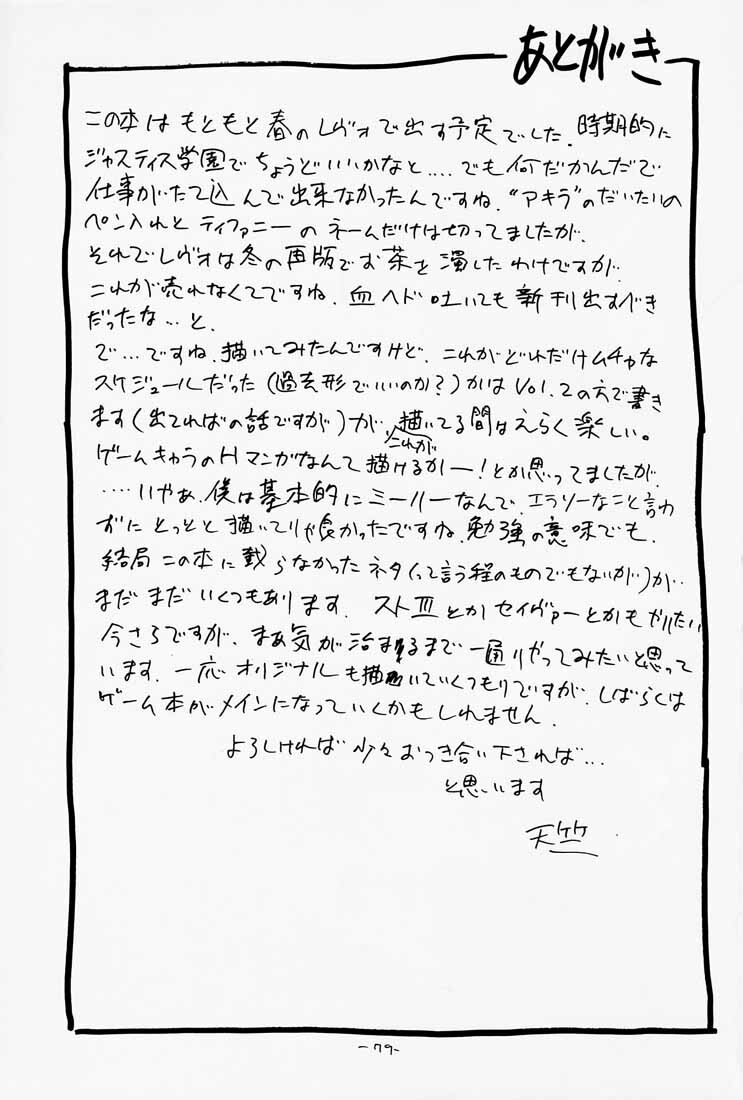 あとがき
この本は もともと 春のレヴォで出す予定でした. 時期的に
ジャスティス学園で ちょうどいいかなと‥‥ でも 何だかんだで
仕事がたて込んで出来なかったんですね. “アキラ”のだいたいの
ペン入れと ティファニーの ネームだけは切ってましたが.
それでレヴォは冬の再版でお茶を濁したわけですが.
これが売れなくてですね. 血ヘド吐いても新刊出すべき
だったな‥と.
で…ですね. 描いてみたんですけど. これがどれだけムチャな
スケジュールだった(過去形でいいのか?)かは Vol.2の方で書き
ます(出てればの話ですが)が 描いてる間はえらく楽しい。
ゲームキャラのHマンガなんて これが 描けるかー!とか思ってましたが.
‥‥いやぁ. 僕は基本的にミーハーなんで. エラソーなこと言わ
ずに とっとと描いてりゃ良かったですね. 勉強の意味でも.
結局 この本に載らなかったネタ(って言う程のものでもないが)が.
まだまだいくつもあります. ストIIIとかセイヴァーとかもやりたい
今さらですが. まぁ気が治まるまで 一通りやってみたいと思って
います. 一応 オリジナルも描いていくつもりですが. しばらくは
ゲーム本がメインになっていくかもしれません.
よろしければ 少々おつき合い下されば…
と思います
天竺
-79-